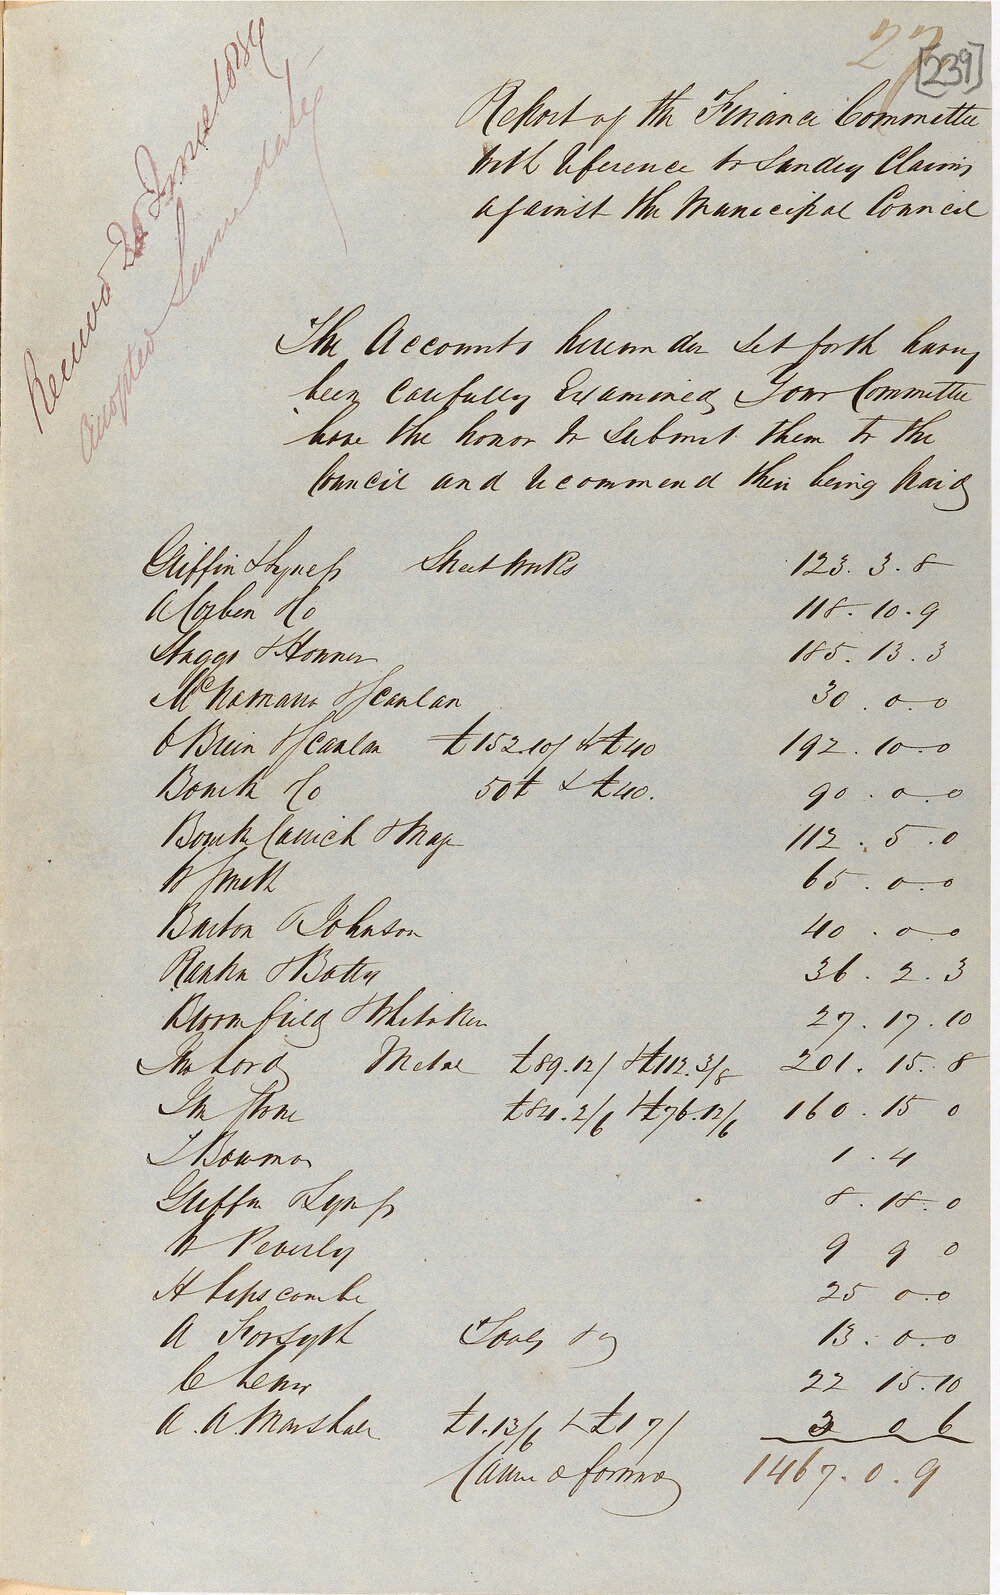 27
[239]
Report of the Finance Committee
with reference to Sundry Claims
against the Municipal Council
Received 22 June 1852
Adopted Same date
The Accounts hereunder set forth having
been carefully Examined, Your Committee
have the honor to submit them to the
Council and recommend their being paid
Griffin & Lyness Street Works 123. 3. 8
A Corben & Co 118. 10. 9
Staggs & Honner 185. 13. 3
McNamara & Scanlan 30. 0. 0
O Brien & Scanlan £152.10/ & £40 192. 10. 0
Bourk & Co 50£ & £40. 90. 0. 0
Bourke Carrick & May 112. 5. 0
W Smith 65. 0. 0
Barton & Johnson 40. 0. 0
Rankin & Batty 36. 2. 3
Bloomfield & Whitaker 27. 17. 10
Jno Lord Metal £89.12/ & £112.3/8 201. 15. 8
Jno Stone £84.2/6 & £76.12/6 160. 15 0
T Bowman 1. 4
Griffin & Lyness 8. 18. 0
W Peverly 9 9 0
H Lipscombe 25 0. 0
A Forsyth Tools &c 13. 0. 0
C Lenn 22 15. 10
A. A. Marshall £1.13/6 & £1 7/ 3 0 6
Carried forward 1467. 0. 9